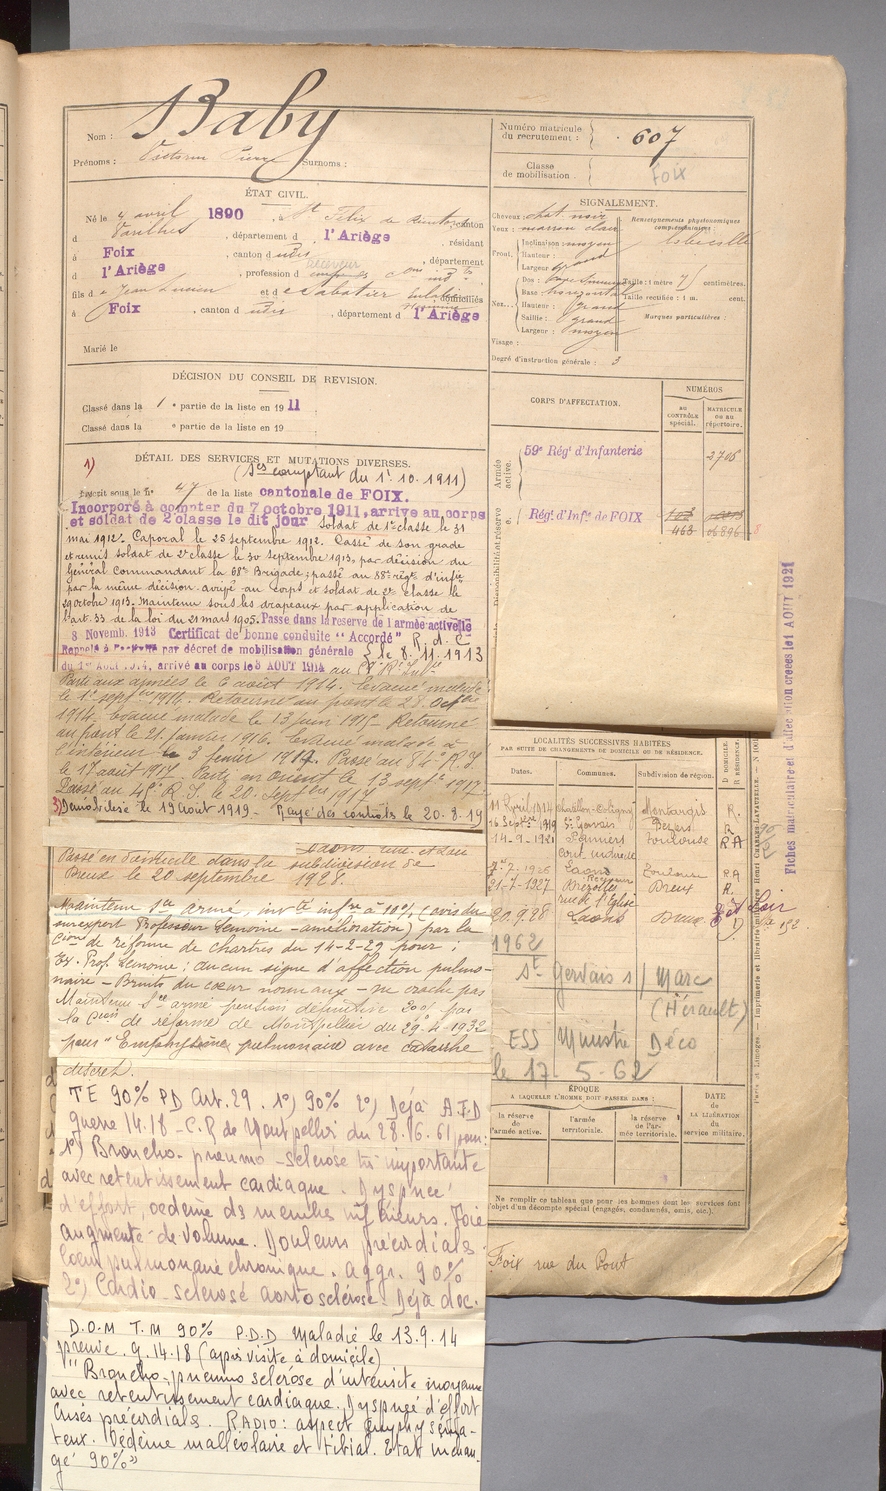 Nom : Baby
Prénoms : Pierre Surnoms :
Numéro matricule du recrutement : 607
Classe de mobilisation : Foix
ÉTAT CIVIL.
Né le 4 avril 1890, à St Félix de canton
d Varilhes, département d l'Ariège, résidant
à Foix, canton d udis, département
d l'Ariège, profession d
fils d e Jean et d e Sabatier domiciliés
à Foix, canton d udis, département d l'Ariège
Marié le
SIGNALEMENT.
Cheveux : chat. noir
Yeux : marron clair
Front. Inclinaison : moyen
Hauteur :
Largeur : grand
Nez. Dos :
Base : horizontal
Hauteur : grand
Saillie : grand
Largeur : moyen
Visage :
Degré d'instruction générale : 3
Renseignements physionomiques complémentaires :
Taille : 1 mètre 71 centimètres.
Taille rectifiée : 1 m. cent.
Marques particulières :
DÉCISION DU CONSEIL DE REVISION.
Classé dans la 1e partie de la liste en 1911
Classé dans la e partie de la liste en 19
DÉTAIL DES SERVICES ET MUTATIONS DIVERSES.
1) (Ses comptant du 1er 10.1911)
Inscrit sous le n° 47 de la liste cantonale de FOIX.
Incorporé à compter du 7 octobre 1911, arrive au corps
et soldat de 2e classe le dit jour Soldat de 1e classe le 31
mai 1912. Caporal le 25 septembre 1912. Cassé de son grade
et remis soldat de 2e classe le 30 septembre 1913, par décision du
Général Commandant la 68e Brigade; passé au 88e régt d'infie
par la même décision. arrivé au corps et soldat de 2e classe le
29 octobre 1913. Maintenu sous les drapeaux par application de
l'art. 33 de la loi du 21 mars 1905. Passé dans la réserve de l'armée active le
8 Novemb. 1913 Certificat de bonne conduite "Accordé" R. d. C
Rappelé à l'activité par décret de mobilisation générale le 8.11.1913
du 1er Août 1914, arrivé au corps le 3 AOUT 1914 au
Parti aux armées le 6 août 1914. Évacué malade
le 1er septbre 1914. Retourné au front le 28 octbre
1914. Évacué malade le 13 juin 1915. Retourné
au front le 21 janvier 1916. Évacué malade à
l'intérieur le 3 février 1917. Passé au 84e R.I.
le 17 août 1917. Parti en Orient le 13 septre 1917.
Passé au 45e R.I. le 20 septbre 1917
3) Démobilisé le 19 août 1919 - Rayé des contrôles le 20.8.19
Passé en domicile dans la subdivision de
Dreux le 20 septembre 1928.
Maintenu Ser armé, invté infre à 10% (avis du
surexpert Professeur Lemoine - amélioration) par la
Cion de réforme de Chartres du 14-2-29 pour :
Prof. Lemoine : aucun signe d'affection pulmo-
naire - Bruits du cœur normaux - ne crache pas
Maintenu Sce armé pension définitive 20% par
la Cion de réforme de Montpellier du 29-4-1932
pour "Emphysème pulmonaire avec catarrhe
discret.
TE 90% PD Art. 29. 1°) 90% 2°) Déjà A.F.D
guerre 14.18 - C.R de Montpellier du 28.6.61 pour :
1°) Broncho-pneumo-sclérose très importante
avec retentissement cardiaque. Dyspnée
d'effort, oedème ds membres inférieurs. Foie
augmenté de volume. Douleurs précordials
Cœur pulmonaire chronique. aggr. 90%
2°) Cardio-sclérose aortosclérose. Déjà doc.
D.O.M T.M 90% P.D.D Maladie le 13.9.14
preuve. g.14.18 (après visite à domicile)
"Broncho-pneumo sclérose d'intensité moyenne
avec retentissement cardiaque. Dyspnée d'effort
Crises précordials. RADIO : aspect emphyséma-
teux. Oedème malléolaire et tibial. Etat inchan-
gé 90%"
CORPS D'AFFECTATION.
NUMÉROS
AU CONTRÔLE SPÉCIAL.
MATRICULE OU AU RÉPERTOIRE.
Armée active.
59e Régt d'Infanterie
Disponibilité et réserve
Régt d'Infie de FOIX
463
LOCALITÉS SUCCESSIVES HABITÉES
PAR SUITE DE CHANGEMENTS DE DOMICILE OU DE RÉSIDENCE.
Dates. Communes. Subdivision de région. D DOMICILE. R RÉSIDENCE.
11 Avril 1914 Chatillon-Coligny Montargis R.
16 Septbre 1919 St Gervais Béziers R
-14-9-1921 Pamiers Toulouse RA
Laons
21-7-1927 Brezolles Dreux R.
rue de l'Eglise
20.9.28 Laons Dreux D
1962
St Gervais s/ Marc
(Hérault)
ESS Ministre Déco
le 17 5-62
ÉPOQUE
A LAQUELLE L'HOMME DOIT PASSER DANS :
la réserve de l'armée active.
l'armée territoriale.
la réserve de l'armée territoriale.
DATE de LA LIBÉRATION du service militaire.
Ne remplir ce tableau que pour les hommes dont les services font l'objet d'un décompte spécial (engagés, condamnés, omis, etc.).
Foix rue du Pont
Fiches matriculaire et d'affectation créées le 1 AOUT 1921
Paris et Limoges. — Imprimerie et librairie militaires Henri CHARLES-LAVAUZELLE.